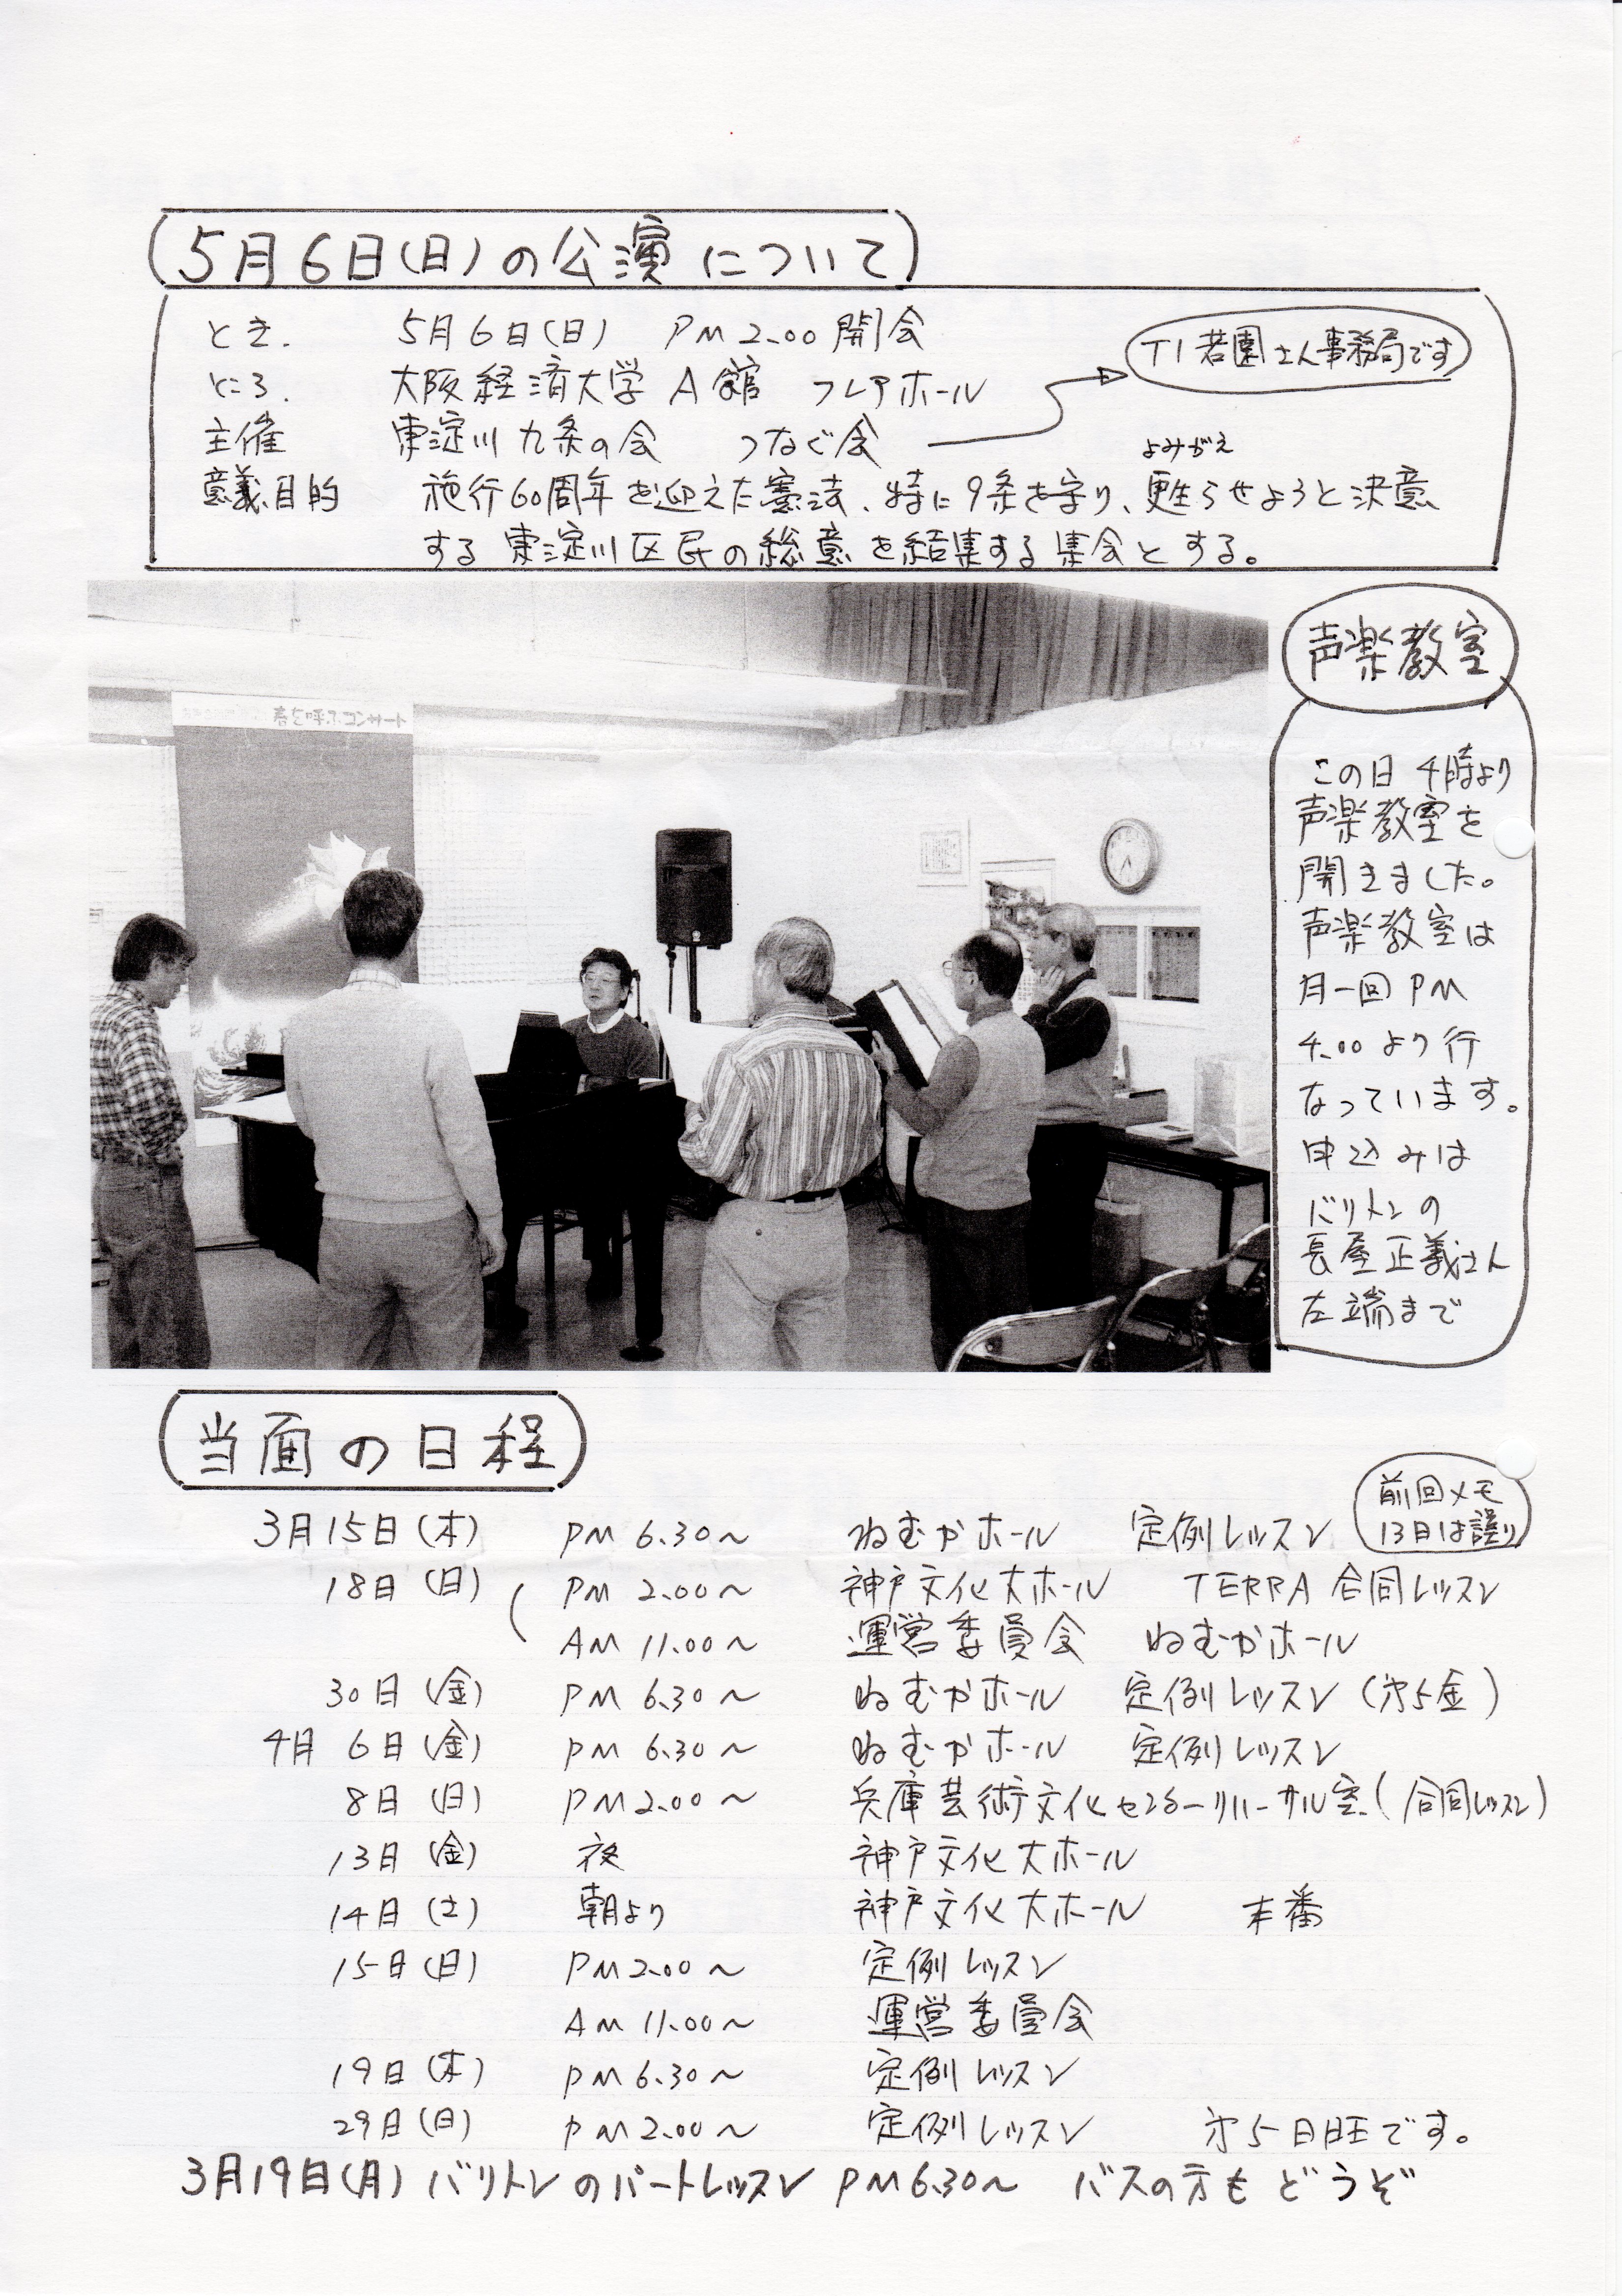 5月6日(日)の公演について
とき. 5月6日(日) PM2.00開会
ところ. 大阪経済大学 A館 フレアホール
T1若園さん事務局です
主催 東淀川九条の会 つなぐ会
意義目的 施行60周年を迎えた憲法、特に9条を守り、甦らせようと決意
よみがえ
する東淀川区民の総意を結集する集会とする。
声楽教室
この日4時より
声楽教室を
開きました。
声楽教室は
月一回PM
4.00より行
なっています。
申込みは
バリトンの
長屋正義さん
左端まで
当面の日程
前回メモ
13日は誤り
3月15日(木) PM 6.30～ ねむかホール 定例レッスン
18日(日) PM 2.00～ 神戸文化大ホール TERRA 合同レッスン
AM 11.00～ 運営委員会 ねむかホール
30日(金) PM 6.30～ ねむかホール 定例レッスン(第5金)
4月 6日(金) PM 6.30～ ねむかホール 定例レッスン
8日(日) PM2.00～ 兵庫芸術文化センターリハーサル室(合同レッスン)
13日(金) 夜 神戸文化大ホール
14日(土) 朝より 神戸文化大ホール 本番
15日(日) PM2.00～ 定例レッスン
AM 11.00～ 運営委員会
19日(木) PM6.30～ 定例レッスン
29日(日) PM2.00～ 定例レッスン 第5日旺です。
3月19日(月) バリトンのパートレッスン PM6.30～ バスの方もどうぞ